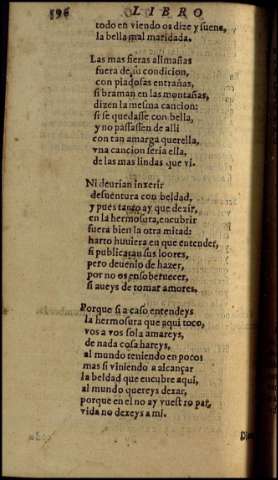 596 LIBRO
todo en viendo os dize y suene,
la bella mal maridada.
Las mas fieras allmañas
fuera de su condicion,
con piadosas entrañas,
si braman en las montañas,
dizen la mesma cancion:
si se quedasse con bella,
y no passassen de alli
con tan amarga querella,
vna cancion seria ella,
de las mas lindas que vi.
Ni deurian inxerir
desuentura con beldad,
y pues tanto ay que dezir,
en la hermosura, encubrir
fuera bien la otra mitad:
harto huuiera en que entender,
si publicaran sus loores,
pero deuenlo de hazer,
por no os ensoberuecer,
si aueys de tomar amores.
Porque si a caso entendeys
la hermosura que aqui toco,
vos a vos sola amareys,
de nada cosa hareys,
al mundo teniendo en poco:
mas si viniendo a alcançar
la beldad que encubre aqui,
al mundo quereys dexar,
porque en el no ay vuestro par,
vida no dexeys a mi.